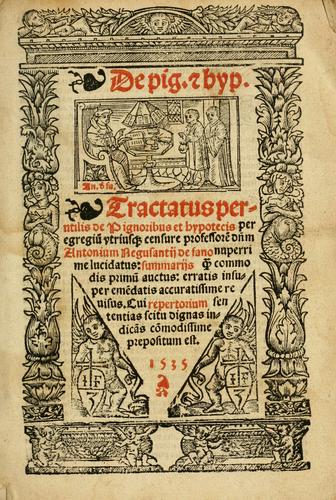 De pig. ⁊ hyp.
An. d fa.
Tractatus per-
utilis de Pignoribus et hypotecis per
egregiũ vtriusq̃ censure professorẽ dñm
Antonium Negusantij de fano nuperri
me lucidatus: summarijs q̃ commo
dis primũ auctus: erratis insu
per emẽdatis accuratissime re
uisus. Cui repertorium sen
tentias scitu dignas in
dicãs cõmodissime
prepositum est.
1535